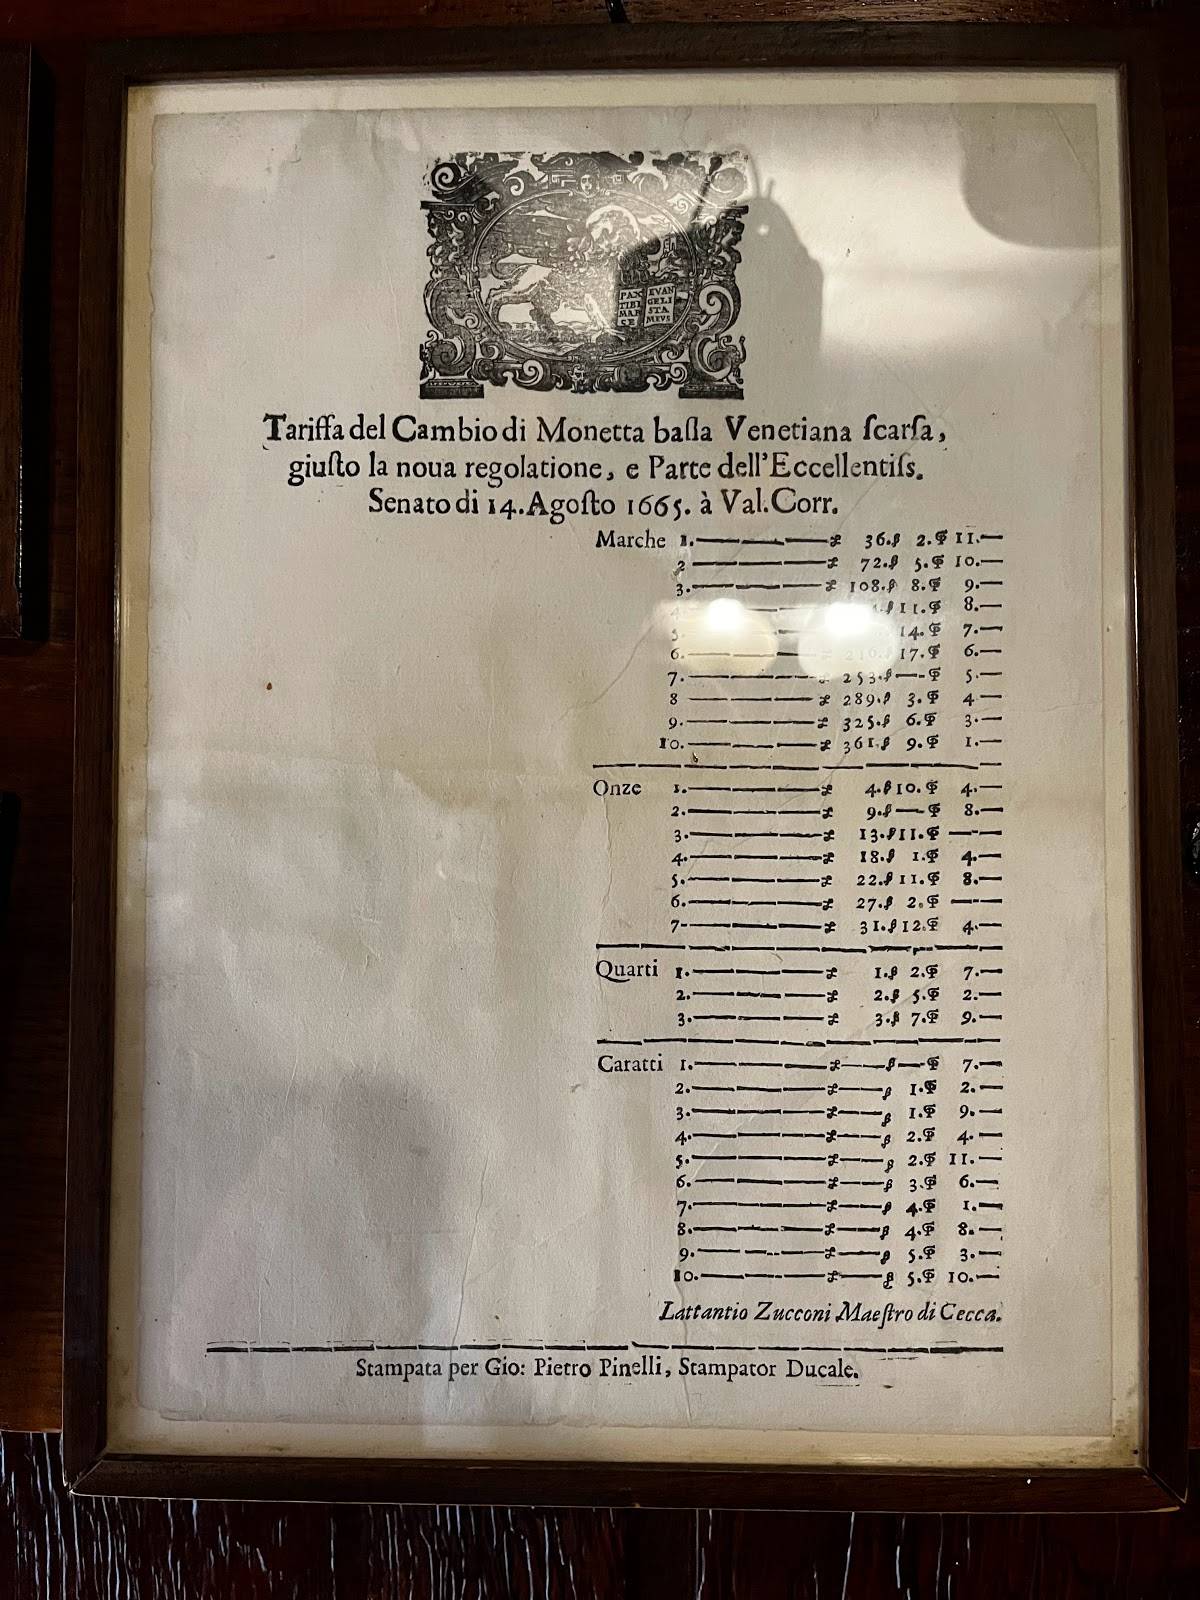 PAX EVAN
TIBI GELI
MAR STA
CE MEVS
Tariffa del Cambio di Monetta baſſa Venetiana ſcarſa,
giuſto la noua regolatione, e Parte dell'Eccellentiſs.
Senato di 14. Agoſto 1665. à Val. Corr.
Marche 1.——— £ 36. ß 2. ₰ 11.—
2 ——— £ 72. ß 5. ₰ 10.—
3. ——— £ 108. ß 8. ₰ 9.—
ß 11. ₰ 8.—
14. ₰ 7.—
6. ——— £ ß 17. ₰ 6.—
7. ——— £ 253. ß — ₰ 5.—
8 ——— £ 289. ß 3. ₰ 4—
9. ——— £ 325. ß 6. ₰ 3.—
10. ——— £ 361. ß 9. ₰ 1.—
Onze 1. ——— £ 4. ß 10. ₰ 4.—
2. ——— £ 9. ß — ₰ 8.—
3. ——— £ 13. ß 11. ₰ ——
4. ——— £ 18. ß 1. ₰ 4.—
5. ——— £ 22. ß 11. ₰ 8.—
6. ——— £ 27. ß 2. ₰ ——
7- ——— £ 31. ß 12. ₰ 4.—
Quarti 1. ——— £ 1. ß 2. ₰ 7.—
2. ——— £ 2. ß 5. ₰ 2.—
3. ——— £ 3. ß 7. ₰ 9.—
Caratti 1. ——— £ — ß — ₰ 7.—
2. ——— £ — ß 1. ₰ 2.—
3. ——— £ — ß 1. ₰ 9.—
4. ——— £ — ß 2. ₰ 4.—
5. ——— £ — ß 2. ₰ 11.—
6. ——— £ — ß 3. ₰ 6.—
7. ——— £ — ß 4. ₰ 1.—
8. ——— £ — ß 4. ₰ 8.—
9. ——— £ — ß 5. ₰ 3.—
10. ——— £ — ß 5. ₰ 10.—
Lattantio Zucconi Maeſtro di Cecca.
Stampata per Gio: Pietro Pinelli, Stampator Ducale.